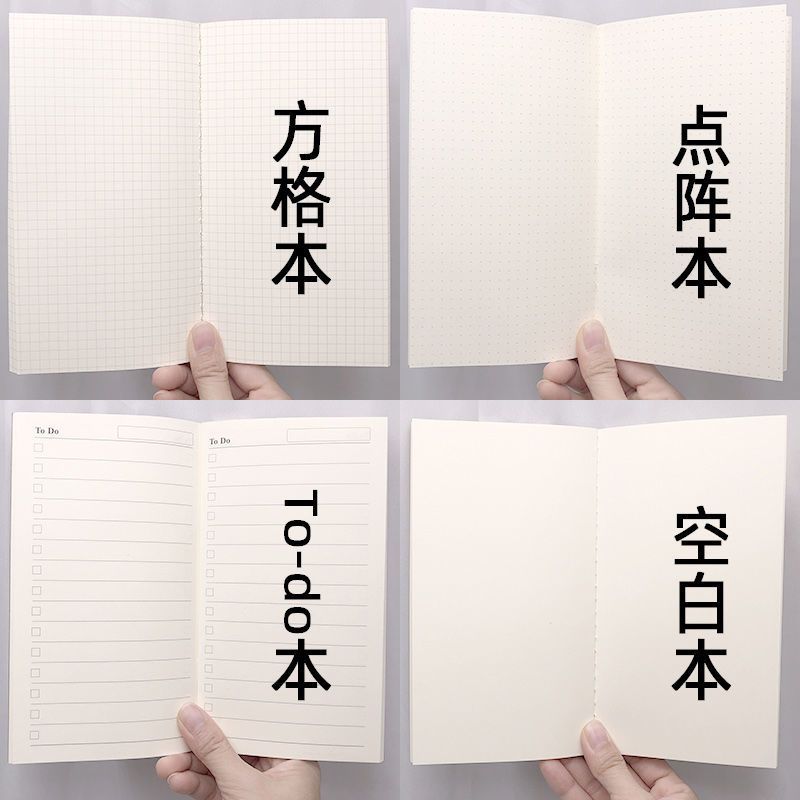 方格本
点阵本
To Do
To Do
To-do本
空白本